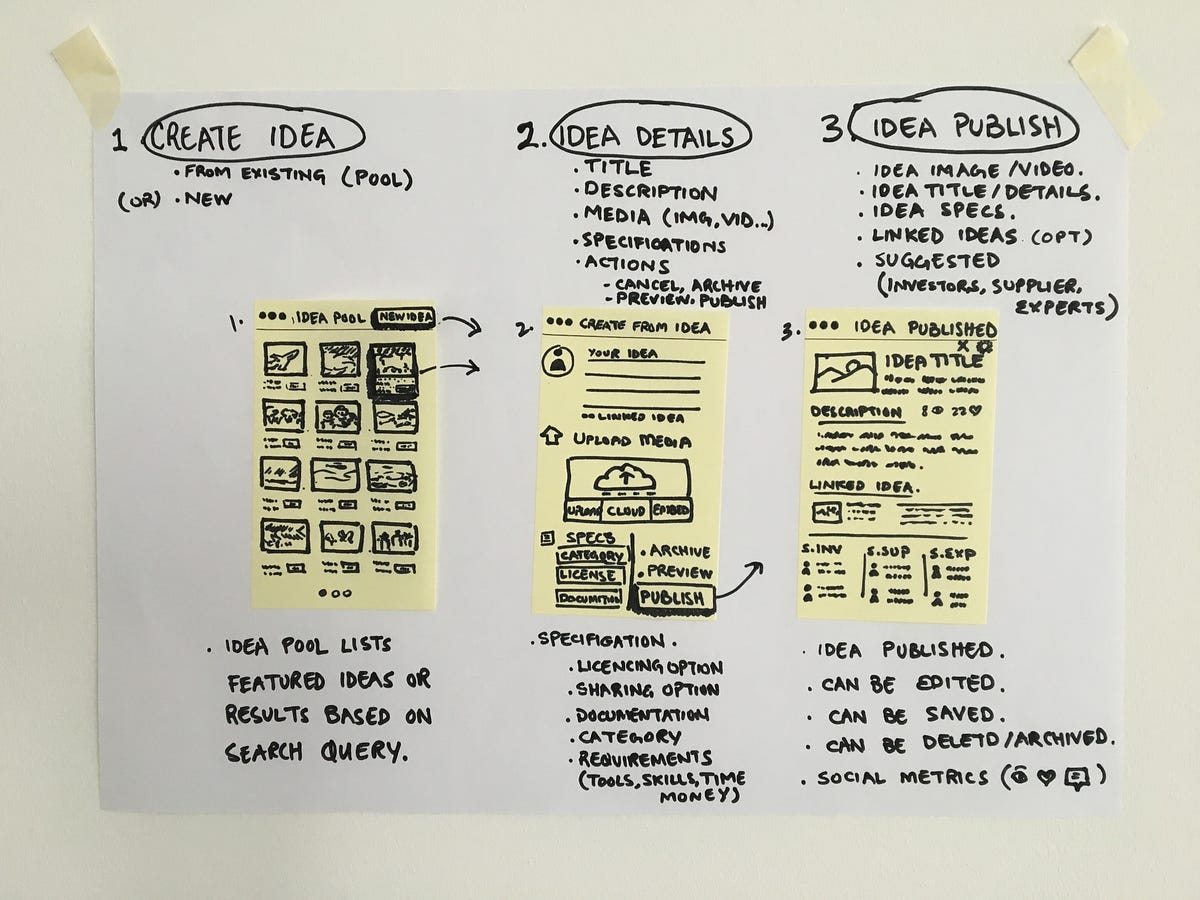 1 CREATE IDEA
• FROM EXISTING (POOL)
(OR) • NEW
2. IDEA DETAILS
• TITLE
• DESCRIPTION
• MEDIA (IMG, VID...)
• SPECIFICATIONS
• ACTIONS
- CANCEL, ARCHIVE
- PREVIEW, PUBLISH
3. IDEA PUBLISH
• IDEA IMAGE / VIDEO.
• IDEA TITLE / DETAILS.
• IDEA SPECS.
• LINKED IDEAS (OPT)
• SUGGESTED
(INVESTORS, SUPPLIER,
EXPERTS)
1.
IDEA POOL NEW IDEA
2.
CREATE FROM IDEA
YOUR IDEA
LINKED IDEA
UPLOAD MEDIA
UPLOAD CLOUD EMBED
SPECS
CATEGORY
LICENSE
• ARCHIVE
• PREVIEW
PUBLISH
3.
IDEA PUBLISHED
X
IDEA TITLE
DESCRIPTION 8 22
LINKED IDEA.
S.INV S.SUP S.EXP
• IDEA POOL LISTS
FEATURED IDEAS OR
RESULTS BASED ON
SEARCH QUERY.
• SPECIFIGATION.
• LICENCING OPTION
• SHARING OPTION
• DOCUMENTATION
• CATEGORY
• REQUIREMENTS
(TOOLS, SKILLS, TIME
MONEY)
• IDEA PUBLISHED.
• CAN BE EDITED.
• CAN BE SAVED.
• CAN BE DELETD/ARCHIVED.
• SOCIAL METRICS ( )